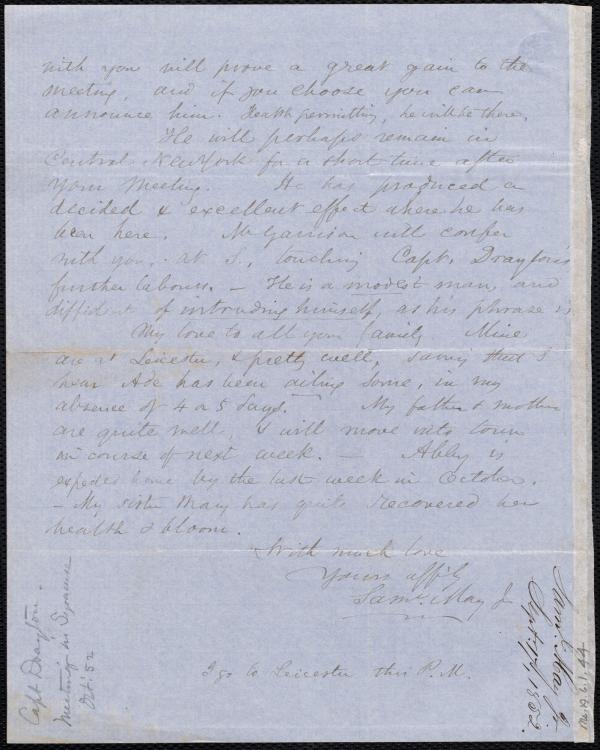 with you will prove a great gain to the
meeting, and if you choose you can
announce him. Health permitting, he will be there.
He will perhaps remain in
Central New York for a short time after
your meeting. He has produced a
decided & excellent effect where he has
been here. Mr Garrison will confer
with you, at S., touching Capt. Drayton's
further labours. — He is a modest man, and
diffident of intruding himself, as his phrase is.
My love to all your family. Mine
are at Leicester, & pretty well, saving that I
hear Ade has been ailing some, in my
absence of 4 or 5 days. My father & mother
are quite well, & will move into town
in course of next week. — Abby is
expected home by the last week in October.
— My sister Mary has quite recovered her
health & bloom.
With much love
Yours aff'ly
Saml. May Jr
I go to Leicester this P.M.
Capt Drayton.
Meeting in Syracuse
Oct. 52
Saml. May Jr.
1852.